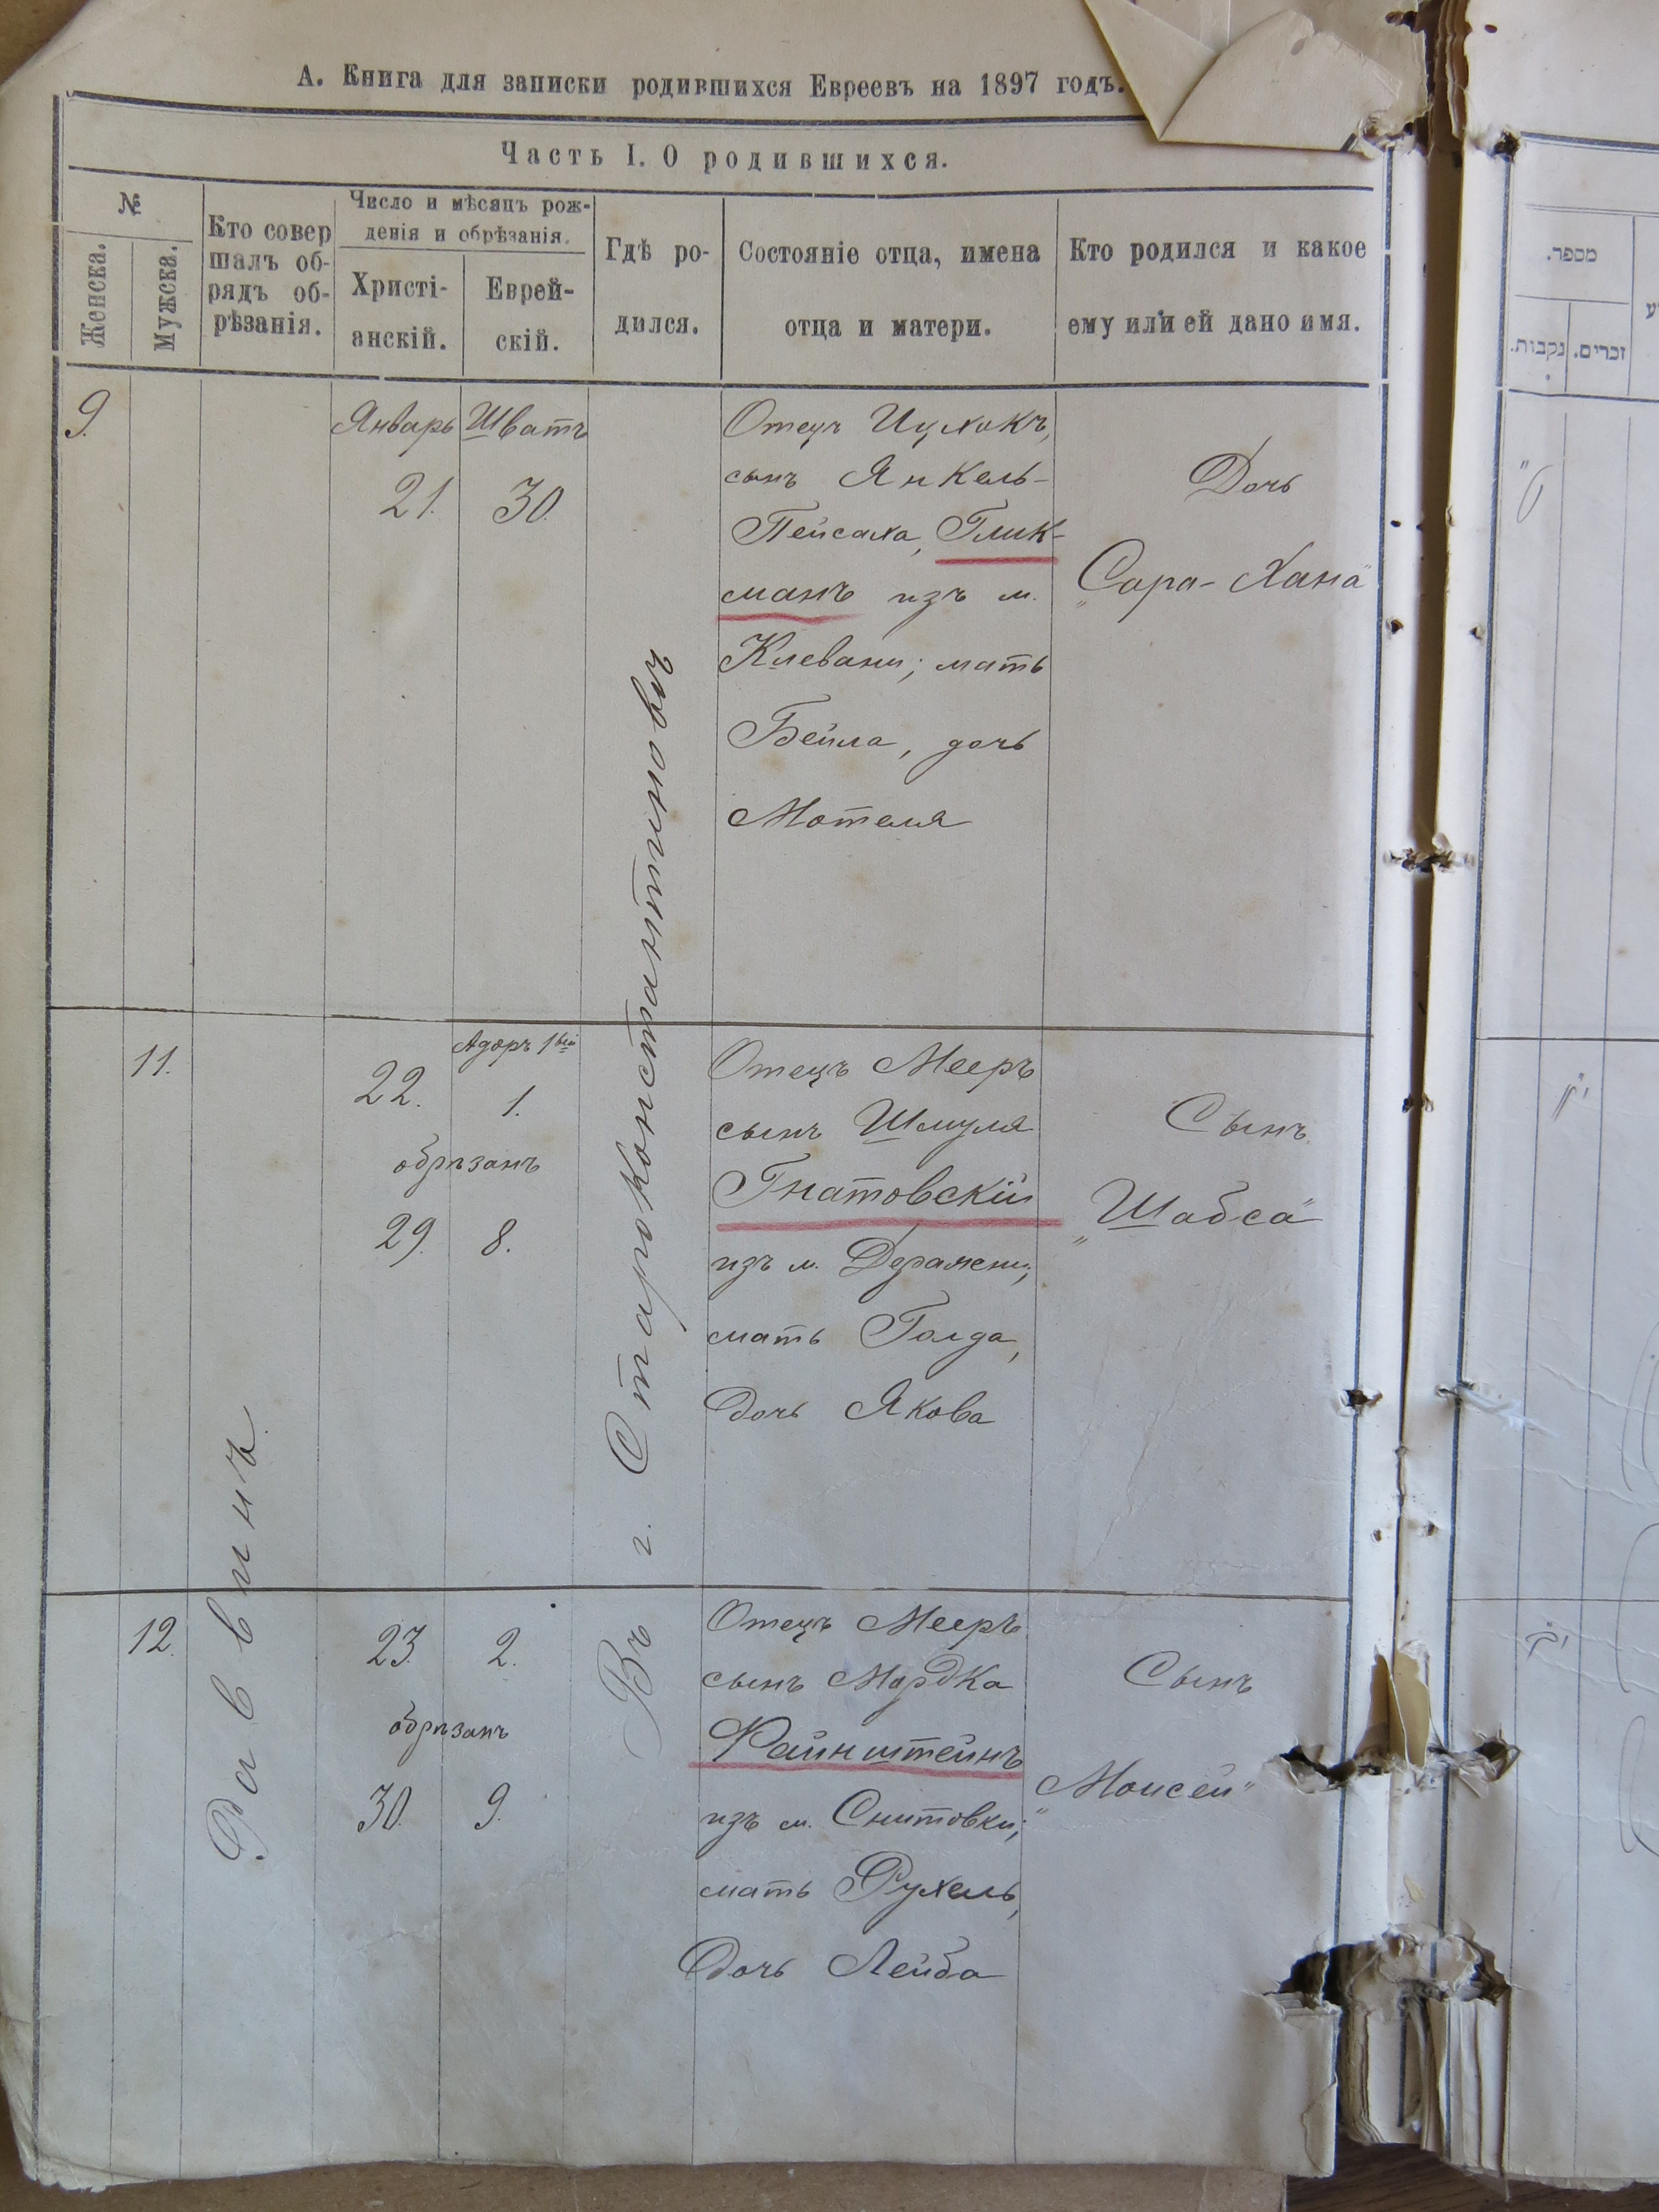 А. Книга для записки родившихся Евреевъ на 1897 годъ.
Часть I. О родившихся.
№
Женска.
Мужска.
Кто совер
шалъ об-
рядъ об-
рѣзанія.
Число и мѣсяцъ рож-
денія и обрѣзанія.
Христі-
анскій.
Еврей-
скій.
Гдѣ ро-
дился.
Состояніе отца, имена
отца и матери.
Кто родился и какое
ему или ей дано имя.
9.
Январь
21.
Шватъ
30.
Отецъ Ицхокъ,
сынъ Янкель-
Пейсаха, Глик-
манъ изъ м.
Клевани; мать
Бейла, дочь
Мотеля
Дочь
"Сара-Хана"
11.
22.
Адоръ 1вый
1.
обрѣзанъ
29. 8.
Отецъ Мееръ
сынъ Шмуля
Гнатовскій
изъ м. Деражни;
мать Голда,
дочь Якова
Сынъ
"Шабса"
12.
23. 2.
обрѣзанъ
30. 9.
Отецъ Мееръ
сынъ Мордка
Файнштейнъ
изъ м. Снитовки;
мать Рухель,
дочь Лейба
Сынъ
"Моисей"
Раввинъ
Въ г. Староконстантиновѣ
מספר.
זכרים.
נקבות.